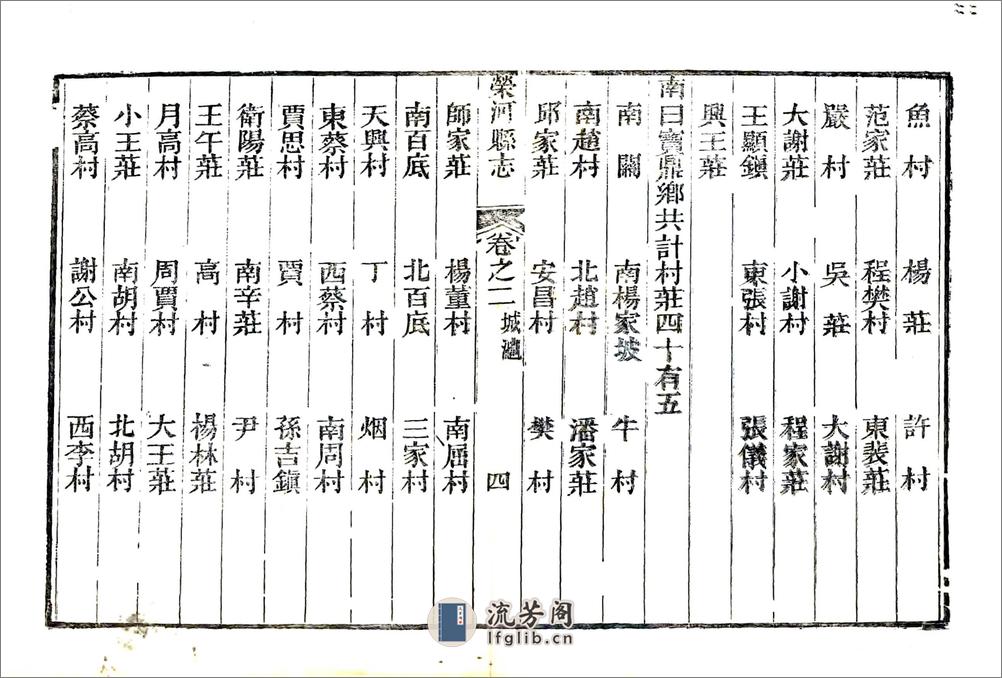 魚村　楊莊　許村
范家莊　程樊村　東裴莊
嚴村　吳莊　大謝村
大謝莊　小謝村　程家莊
王顯鎭　東張村　張儀村
興王莊
南曰寶鼎鄉共計村莊四十有五
南關　南楊家坡　牛村
南趙村　北趙村　潘家莊
邱家莊　安昌村　樊村
榮河縣志　卷之二　城　四
師家莊　楊董村　南屈村
南百底　北百底　三家村
天興村　丁村　烟村
東蔡村　西蔡村　南周村
賈思村　賈村　孫吉鎭
衛陽莊　南辛莊　尹村
王午莊　高村　楊林莊
月高村　周賈村　大王莊
小王莊　南胡村　北胡村
蔡高村　謝公村　西李村
流芳阁
lfglib.cn